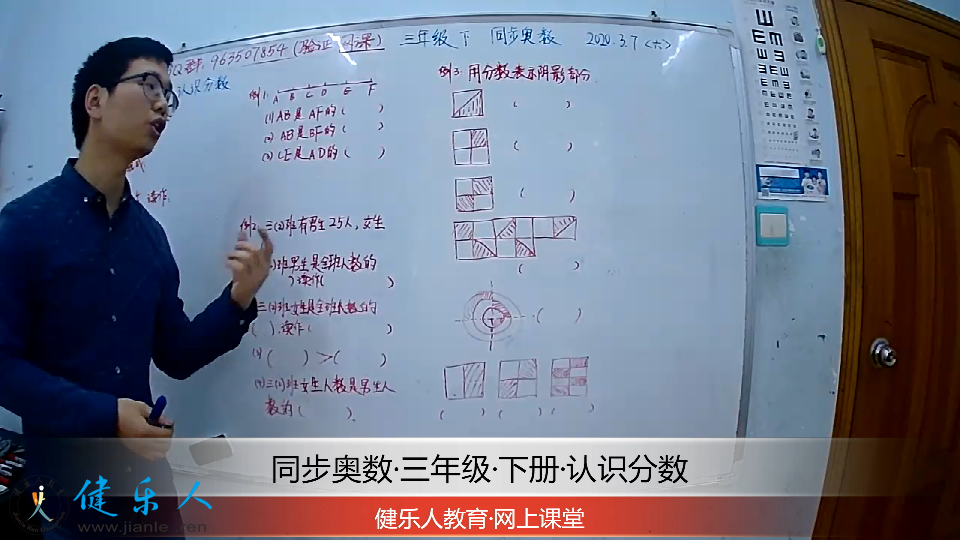 963507854 (验证:网课) 三年级下 同步奥数 2020.3.7<六>
认识分数
例1: A B C D E F
(1) AB 是 AF的 ( )
(2) AB 是 BF的 ( )
(3) CE是 AD的 ( )
例2: 三(2)班有男生25人, 女生
班男生是全班人数的
)读作( )
三(2)班女生是全班人数的
( ) 读作 ( )
( ) >( )
(4)三(2)班女生人数是男生人
数的( )
例3: 用分数表示阴影部分
( )
( )
( )
( )
( )
( ) ( ) ( )
同步奥数·三年级·下册·认识分数
健乐人教育·网上课堂
健乐人
www.jianle.ren